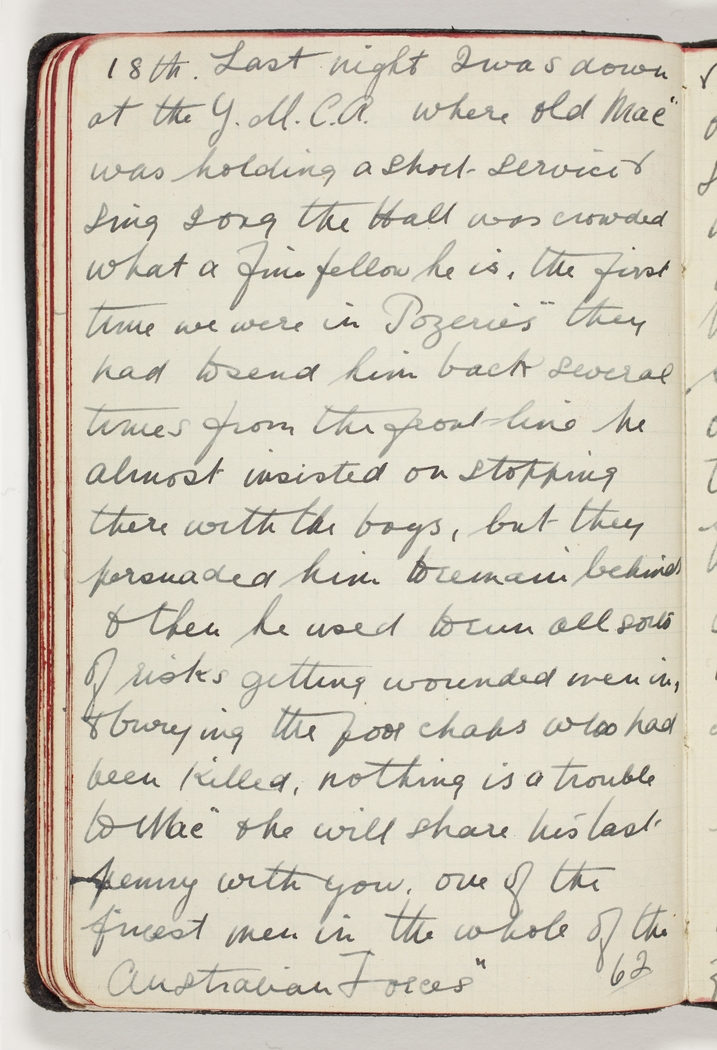 18th. Last night I was down
at the Y.M.C.A. where old Mac"
was holding a short service &
Sing Song the Hall was crowded
what a fine fellow he is, the first
time we were in Pozeries" they
had to send him back several
times from the front-line he
almost insisted on stopping
there with the boys, but they
persuaded him to remain behind
& then he used to run all sorts
of risks getting wounded men in,
& burying the poor chaps who had
been killed, nothing is a trouble
to Mac" & he will share his last
penny with you. one of the
finest men in the whole of the
Australian Forces"
62